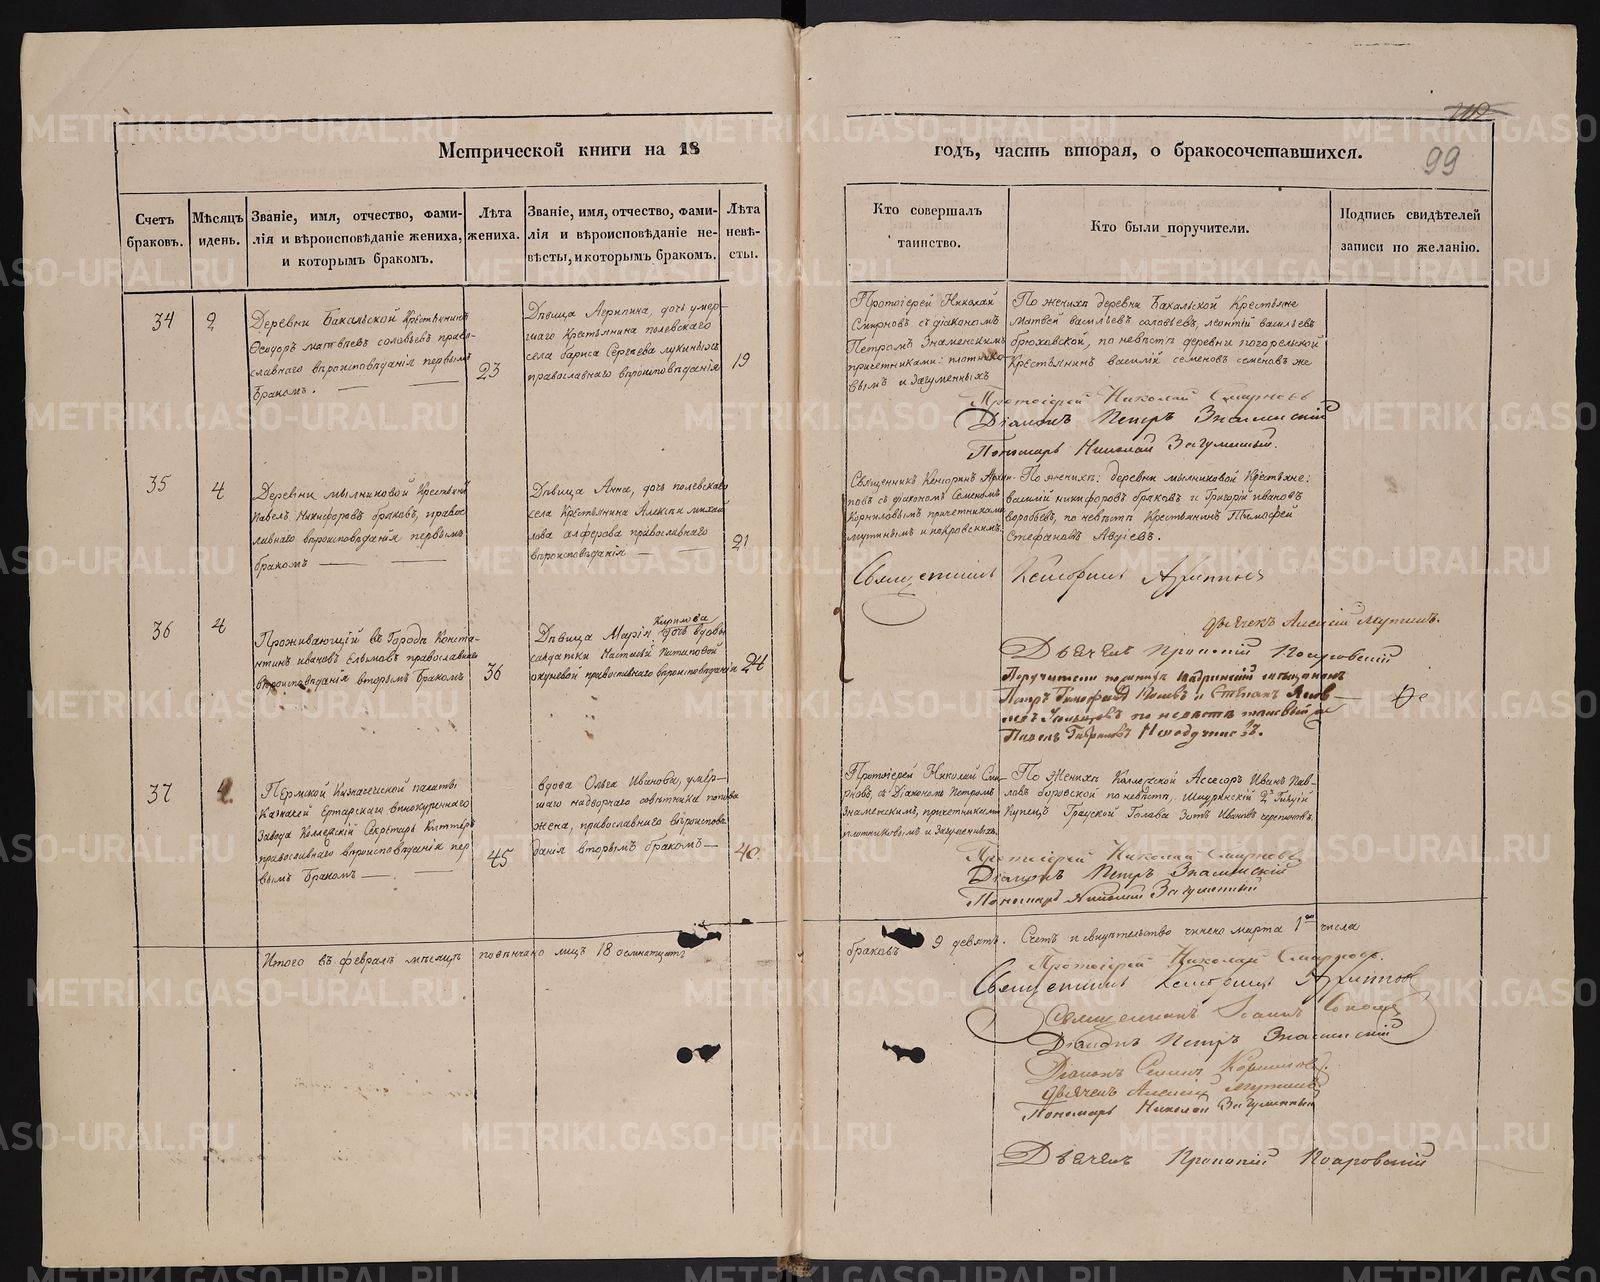 99
Метрической книги на 18
годъ, часть вторая, о бракосочетавшихся.
Счетъ браковъ.
Мѣсяцъ и день.
Званіе, имя, отчество, фами-
лія и вѣроисповѣданіе жениха,
и которымъ бракомъ.
Лѣта
жениха.
Званіе, имя, отчество, фами-
лія и вѣроисповѣданіе не-
вѣсты, и которымъ бракомъ.
Лѣта
невѣ-
сты.
Кто совершалъ
таинство.
Кто были поручители.
Подпись свидѣтелей
записи по желанію.
34
2
Деревни Бакальской Крестьянинъ
Ѳеодоръ матвѣевъ соловьевъ право-
славнаго вѣроисповѣданія первымъ
бракомъ.
23
Дѣвица Агрипина, дочь умер-
шаго Крестьянина полевскаго
села бариса Сергѣева лукиныхъ
православнаго вѣроисповѣданія
19
Протоіерей Николай
Смирновъ съ діакономъ
Петромъ Знаменскимъ
причетниками: плотнико-
вымъ и Загуменныхъ
По женихѣ деревни Бакальской Крестьяне
матвей васильевъ соловьевъ, леонтій васильевъ
брюховской, по невѣстѣ деревни погорельской
Крестьянинъ василій семеновъ семеновъ же
Протоіерей Николай Смирновъ
Діаконъ Петръ Знаменскій
Пономарь Николай Загуменный.
35
4
Деревни мыльниковой Крестьянинъ
Павелъ Никифоровъ браковъ, право-
славнаго вѣроисповѣданія первымъ
бракомъ
Дѣвица Анна, дочь полевскаго
села Крестьянина Алексѣя михай-
лова алферова православнаго
вѣроисповѣданія
21
Священникъ Кенсоринъ Архип-
повъ съ діакономъ Семеномъ
Корниловымъ причетниками
мутинымъ и покровскимъ.
По женихѣ: деревни мыльниковой Крестьяне:
василій никифоровъ браковъ и Григорій ивановъ
воробьевъ, по невѣстѣ Крестьянинъ Тимофей
Стефановъ Авдіевъ.
Священникъ Кенсоринъ Архиповъ
дьячекъ Алексій Мутинъ.
Дьячекъ Прокопій Покровскій
36
4
Проживающій въ Городѣ Конста-
нтинъ ивановъ православнаго
вѣроисповѣданія вторымъ бракомъ
36
Кирилова
Дѣвица Марія дочь вдовы
салдатки православнаго вѣроисповѣданія
24
Поручители по женихѣ
Петръ и Степанъ
по невѣстѣ
Павелъ Гавриловъ
37
4
Пермской Казначейской палаты
Казначей Ертарскаго винокуреннаго
Завода Коллежскій Секретарь
православнаго вѣроисповѣданія пер
вымъ бракомъ
45
вдова Ольга Иванова, умер-
шаго надворнаго совѣтника попова
жена, православнаго вѣроиспове
данія вторымъ бракомъ
40
Протоіерей Николай Сми-
рновъ съ Діакономъ Петромъ
Знаменскимъ, причетниками
плотниковымъ и Загуменныхъ
По Женихѣ Коллежской Ассесоръ Иванъ Пав-
ловъ боровской по невѣстѣ, Шадринскій 2й Гильдіи
Купецъ Градской Голова Зотъ Ивановъ черепановъ.
Протоіерей Николай Смирновъ
Діаконъ Петръ Знаменскій
Пономарь Николай Загуменный
Итого въ февралѣ мѣсяцѣ повѣнчано лицъ 18 осмнатцать
браковъ 9 девять. Счетъ и свидѣтельство чинено марта 1го числа
Протоіерей Николай Смирновъ.
Священникъ Кенсоринъ Архиповъ
Священникъ Іоаннъ
Діаконъ Петръ Знаменскій
Діаконъ Семенъ Корниловъ.
дьячекъ Алексій Мутинъ
Пономарь Николай Загуменный
Дьячекъ Прокопій Покровскій
METRIKI.GASO-URAL.RU